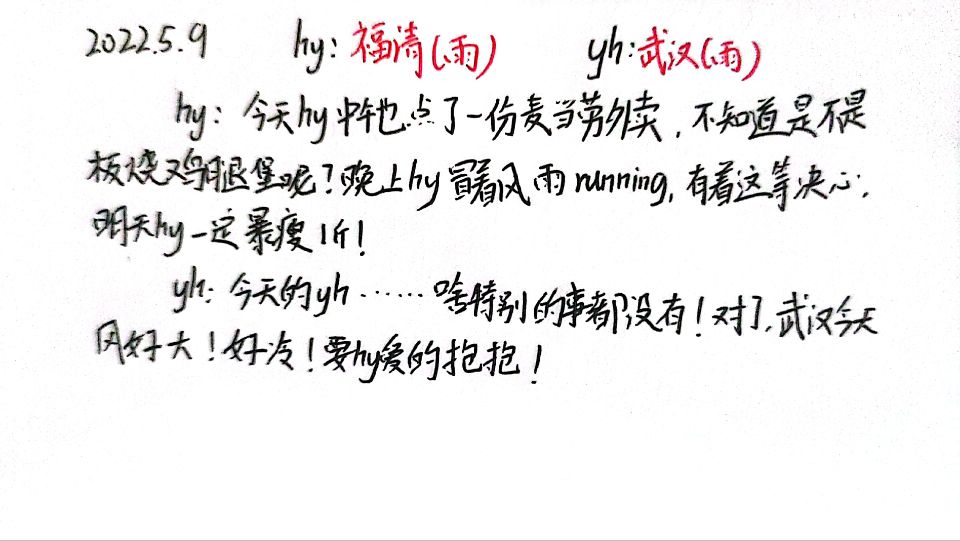 2022.5.9 hy：福清(雨) yh:武汉(雨)
hy：今天hy中午也点了一份麦当劳外卖，不知道是不是
板烧鸡腿堡呢？晚上hy冒着风雨running，有着这等决心，
明天hy一定暴瘦1斤！
yh：今天的yh……啥特别的事都没有！对了，武汉今天
风好大！好冷！要hy爱的抱抱！